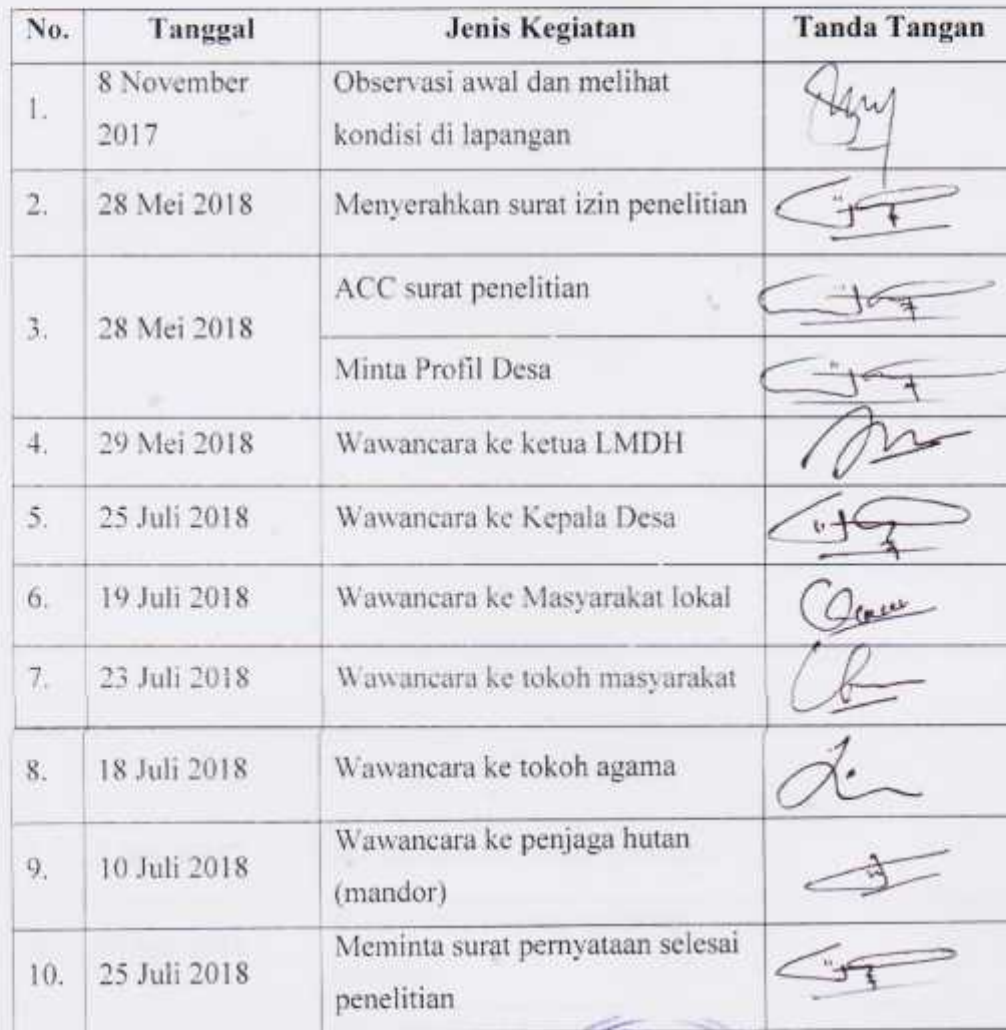 No. Tanggal Jenis Kegiatan Tanda Tangan
1. 8 November 2017 Observasi awal dan melihat
kondisi di lapangan
2. 28 Mei 2018 Menyerahkan surat izin penelitian
3. 28 Mei 2018 ACC surat penelitian
Minta Profil Desa
4. 29 Mei 2018 Wawancara ke ketua LMDH
5. 25 Juli 2018 Wawancara ke Kepala Desa
6. 19 Juli 2018 Wawancara ke Masyarakat lokal
7. 23 Juli 2018 Wawancara ke tokoh masyarakat
8. 18 Juli 2018 Wawancara ke tokoh agama
9. 10 Juli 2018 Wawancara ke penjaga hutan
(mandor)
10. 25 Juli 2018 Meminta surat pernyataan selesai
penelitian